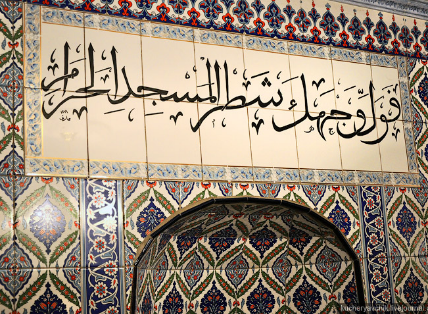 فول وجهك شطر المسجد الحرام
kucheryavchik.livejournal